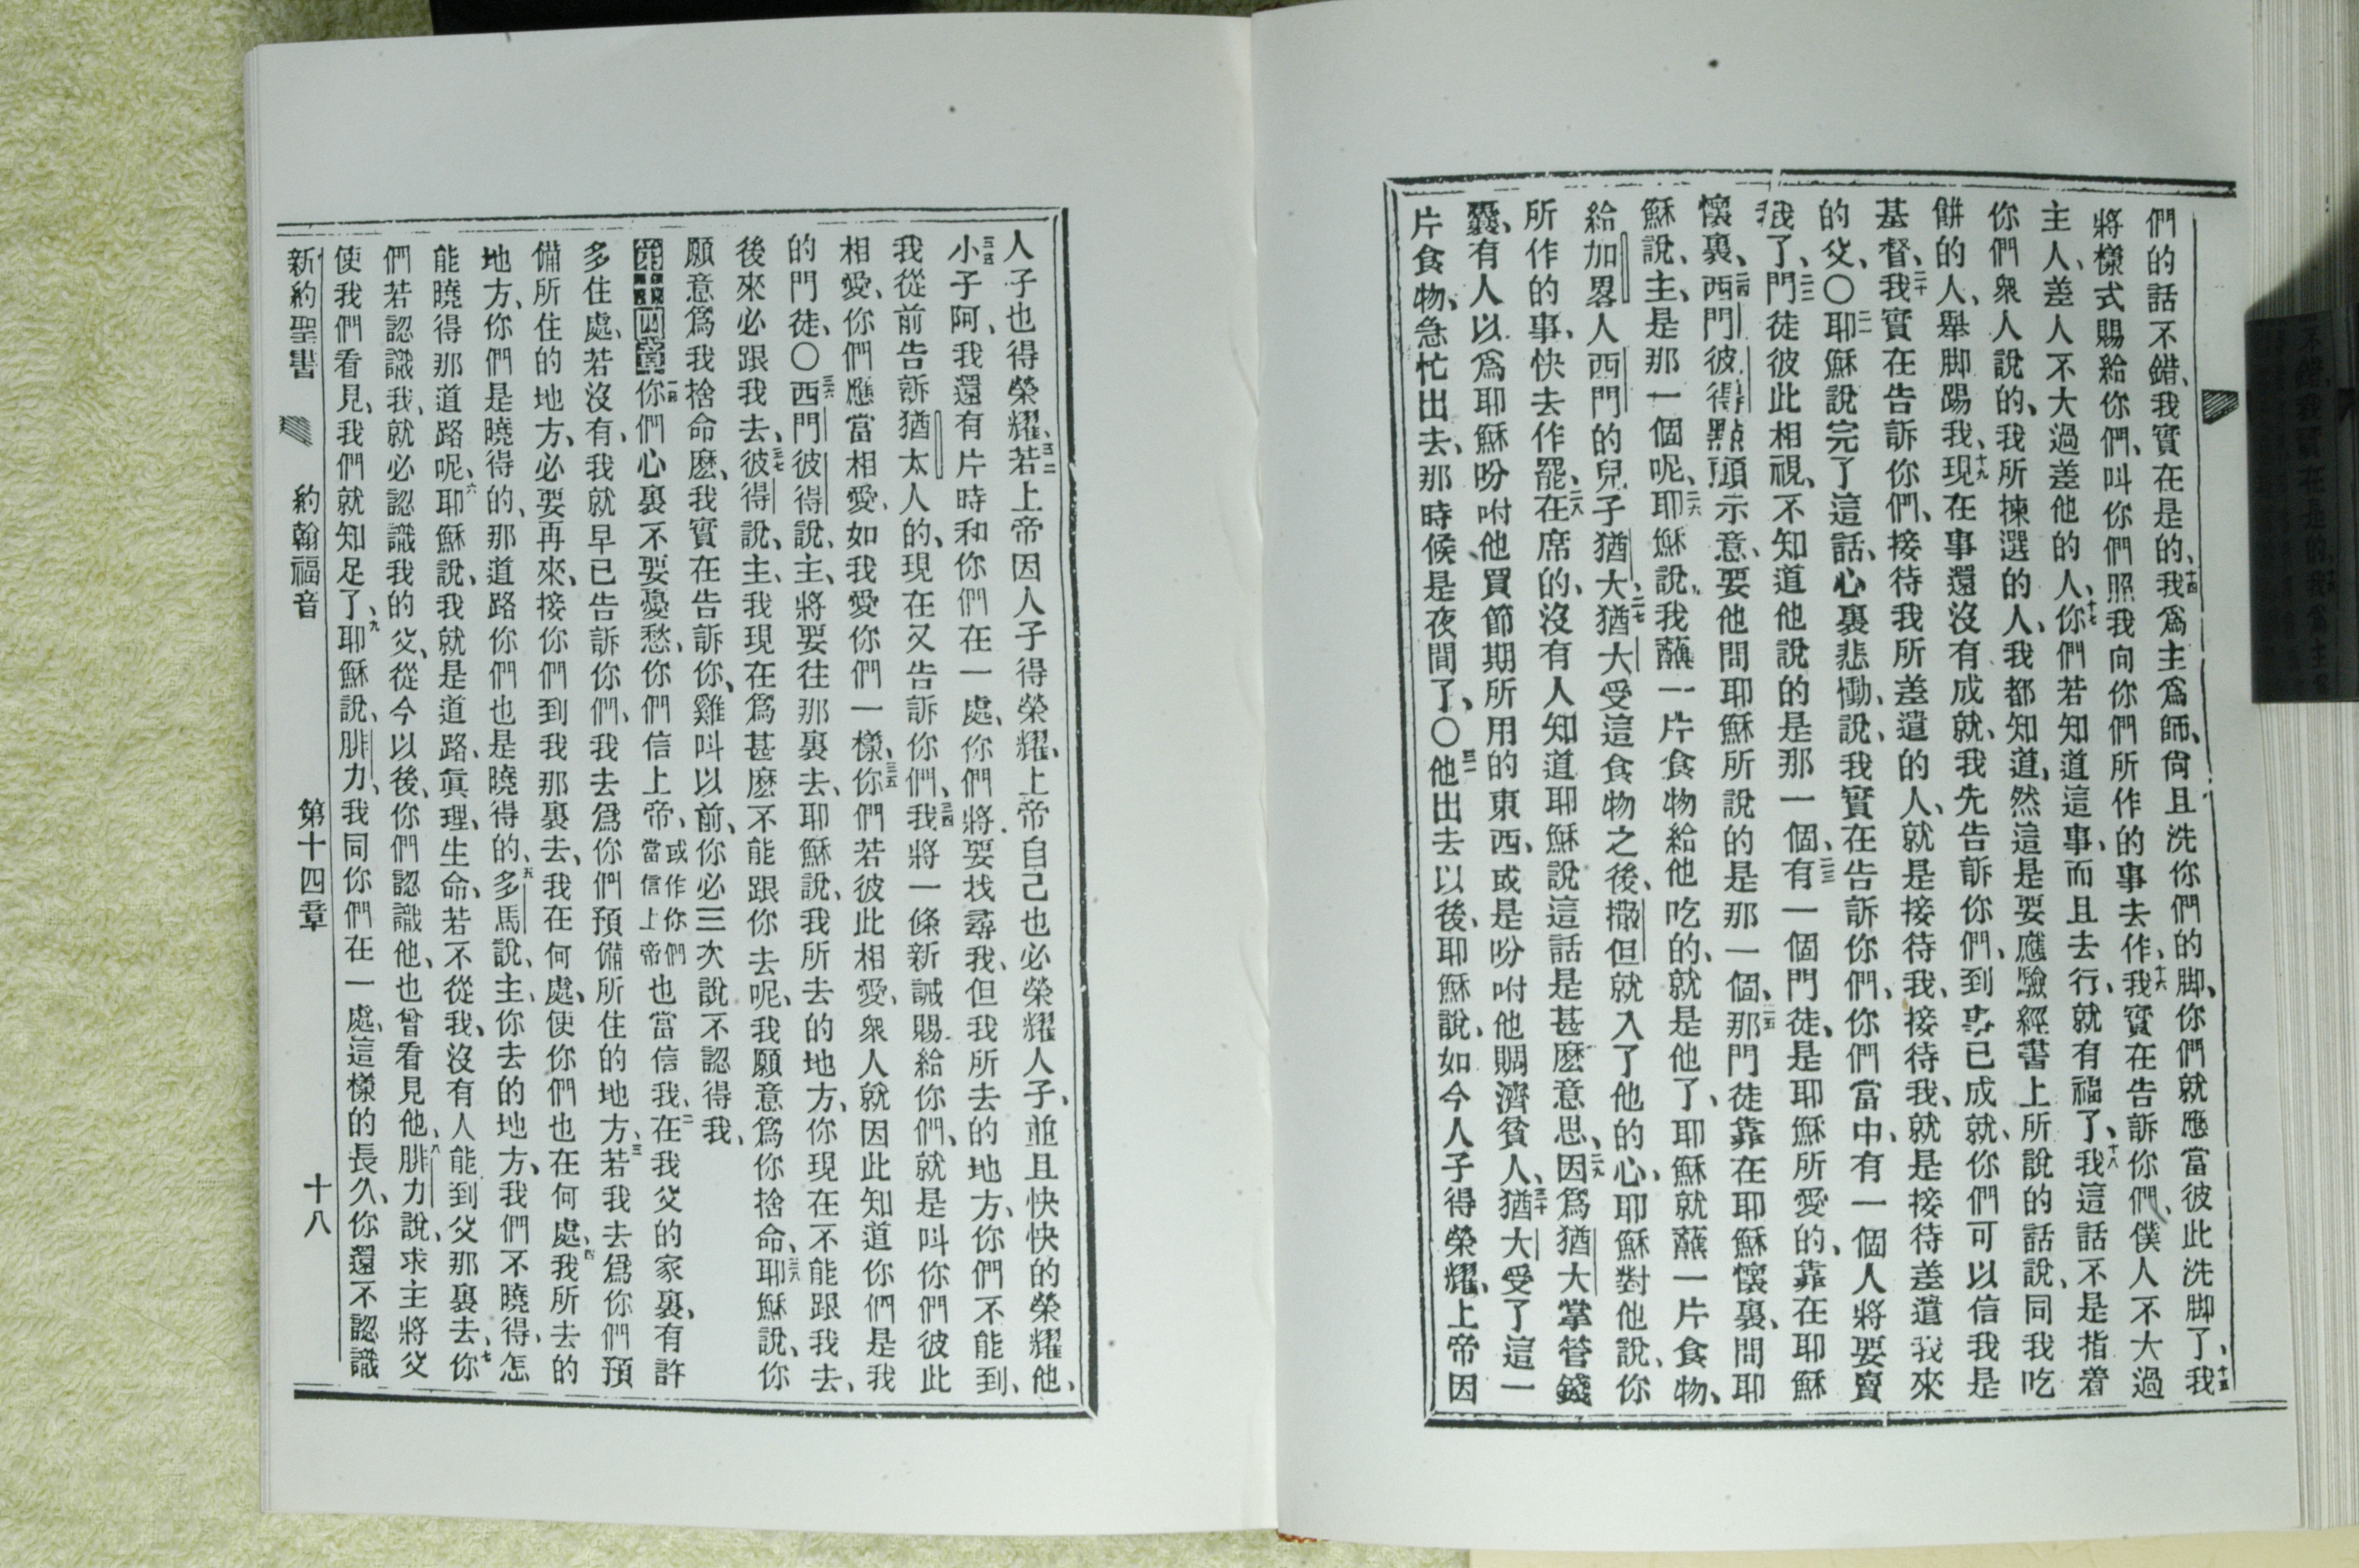 們的話不錯、我實在是的、十四我爲主爲師、尙且洗你們的脚、你們就應當彼此洗脚了、十五我
將樣式賜給你們、叫你們照我向你們所作的事去作、十六我實在告訴你們、僕人不大過
主人、差人不大過差他的人、十七你們若知道這事、而且去行、就有福了、十八我這話不是指着
你們衆人說的、我所揀選的人、我都知道、然這是要應驗經書上所說的話說、同我吃
餅的人、舉脚踢我、十九現在事還沒有成就、我先告訴你們、到事已成就、你們可以信我是
基督、二十我實在告訴你們、接待我所差遣的人、就是接待我、接待我、就是接待差遣我來
的父、〇二一耶穌說完了這話、心裏悲慟、說、我實在告訴你們、你們當中、有一個人將要賣
我了、二二門徒彼此相視、不知道他說的是那一個、二三有一個門徒、是耶穌所愛的、靠在耶穌
懷裏、二四西門彼得點頭示意、要他問耶穌所說的是那一個、二五那門徒靠在耶穌懷裏、問耶
穌說、主、是那一個呢、二六耶穌說、我蘸一片食物給他吃的、就是他了、耶穌就蘸一片食物、
給加畧人西門的兒子猶大、二七猶大受這食物之後、撒但就入了他的心、耶穌對他說、你
所作的事、快去作罷、二八在席的、沒有人知道耶穌說這話是甚麽意思、二九因爲猶大掌管錢
囊、有人以爲耶穌吩咐他買節期所用的東西、或是吩咐他賙濟貧人、三十猶大受了這一
片食物、急忙出去、那時候是夜間了、〇三一他出去以後、耶穌說、如今人子得榮耀、上帝因
人子也得榮耀、三二若上帝因人子得榮耀、上帝自己也必榮耀人子、並且快快的榮耀他、
三三小子阿、我還有片時和你們在一處、你們將要找尋我、但我所去的地方、你們不能到、
我從前告訴猶太人的、現在又告訴你們、三四我將一條新誡賜給你們、就是叫你們彼此
相愛、你們應當相愛、如我愛你們一樣、三五你們若彼此相愛、衆人就因此知道你們是我
的門徒、〇三六西門彼得說、主、將要往那裏去、耶穌說、我所去的地方、你現在不能跟我去、
後來必跟我去、三七彼得說、主、我現在爲甚麽不能跟你去呢、我願意爲你捨命、三八耶穌說、你
願意爲我捨命麽、我實在告訴你、雞叫以前、你必三次說不認得我、
第十四章 一你們心裏不要憂愁、你們信上帝、或作你們當信上帝也當信我、二在我父的家裏、有許
多住處、若沒有、我就早已告訴你們、我去爲你們預備所住的地方、三若我去爲你們預
備所住的地方、必要再來、接你們到我那裏去、我在何處、使你們也在何處、四我所去的
地方、你們是曉得的、那道路你們也是曉得的、五多馬說、主、你去的地方、我們不曉得、怎
能曉得那道路呢、六耶穌說、我就是道路、眞理、生命、若不從我、沒有人能到父那裏去、七你
們若認識我、就必認識我的父、從今以後、你們認識他、也曾看見他、八腓力說、求主將父
使我們看見、我們就知足了、九耶穌說、腓力、我同你們在一處、這樣的長久、你還不認識
新約聖書 約翰福音 第十四章 十八